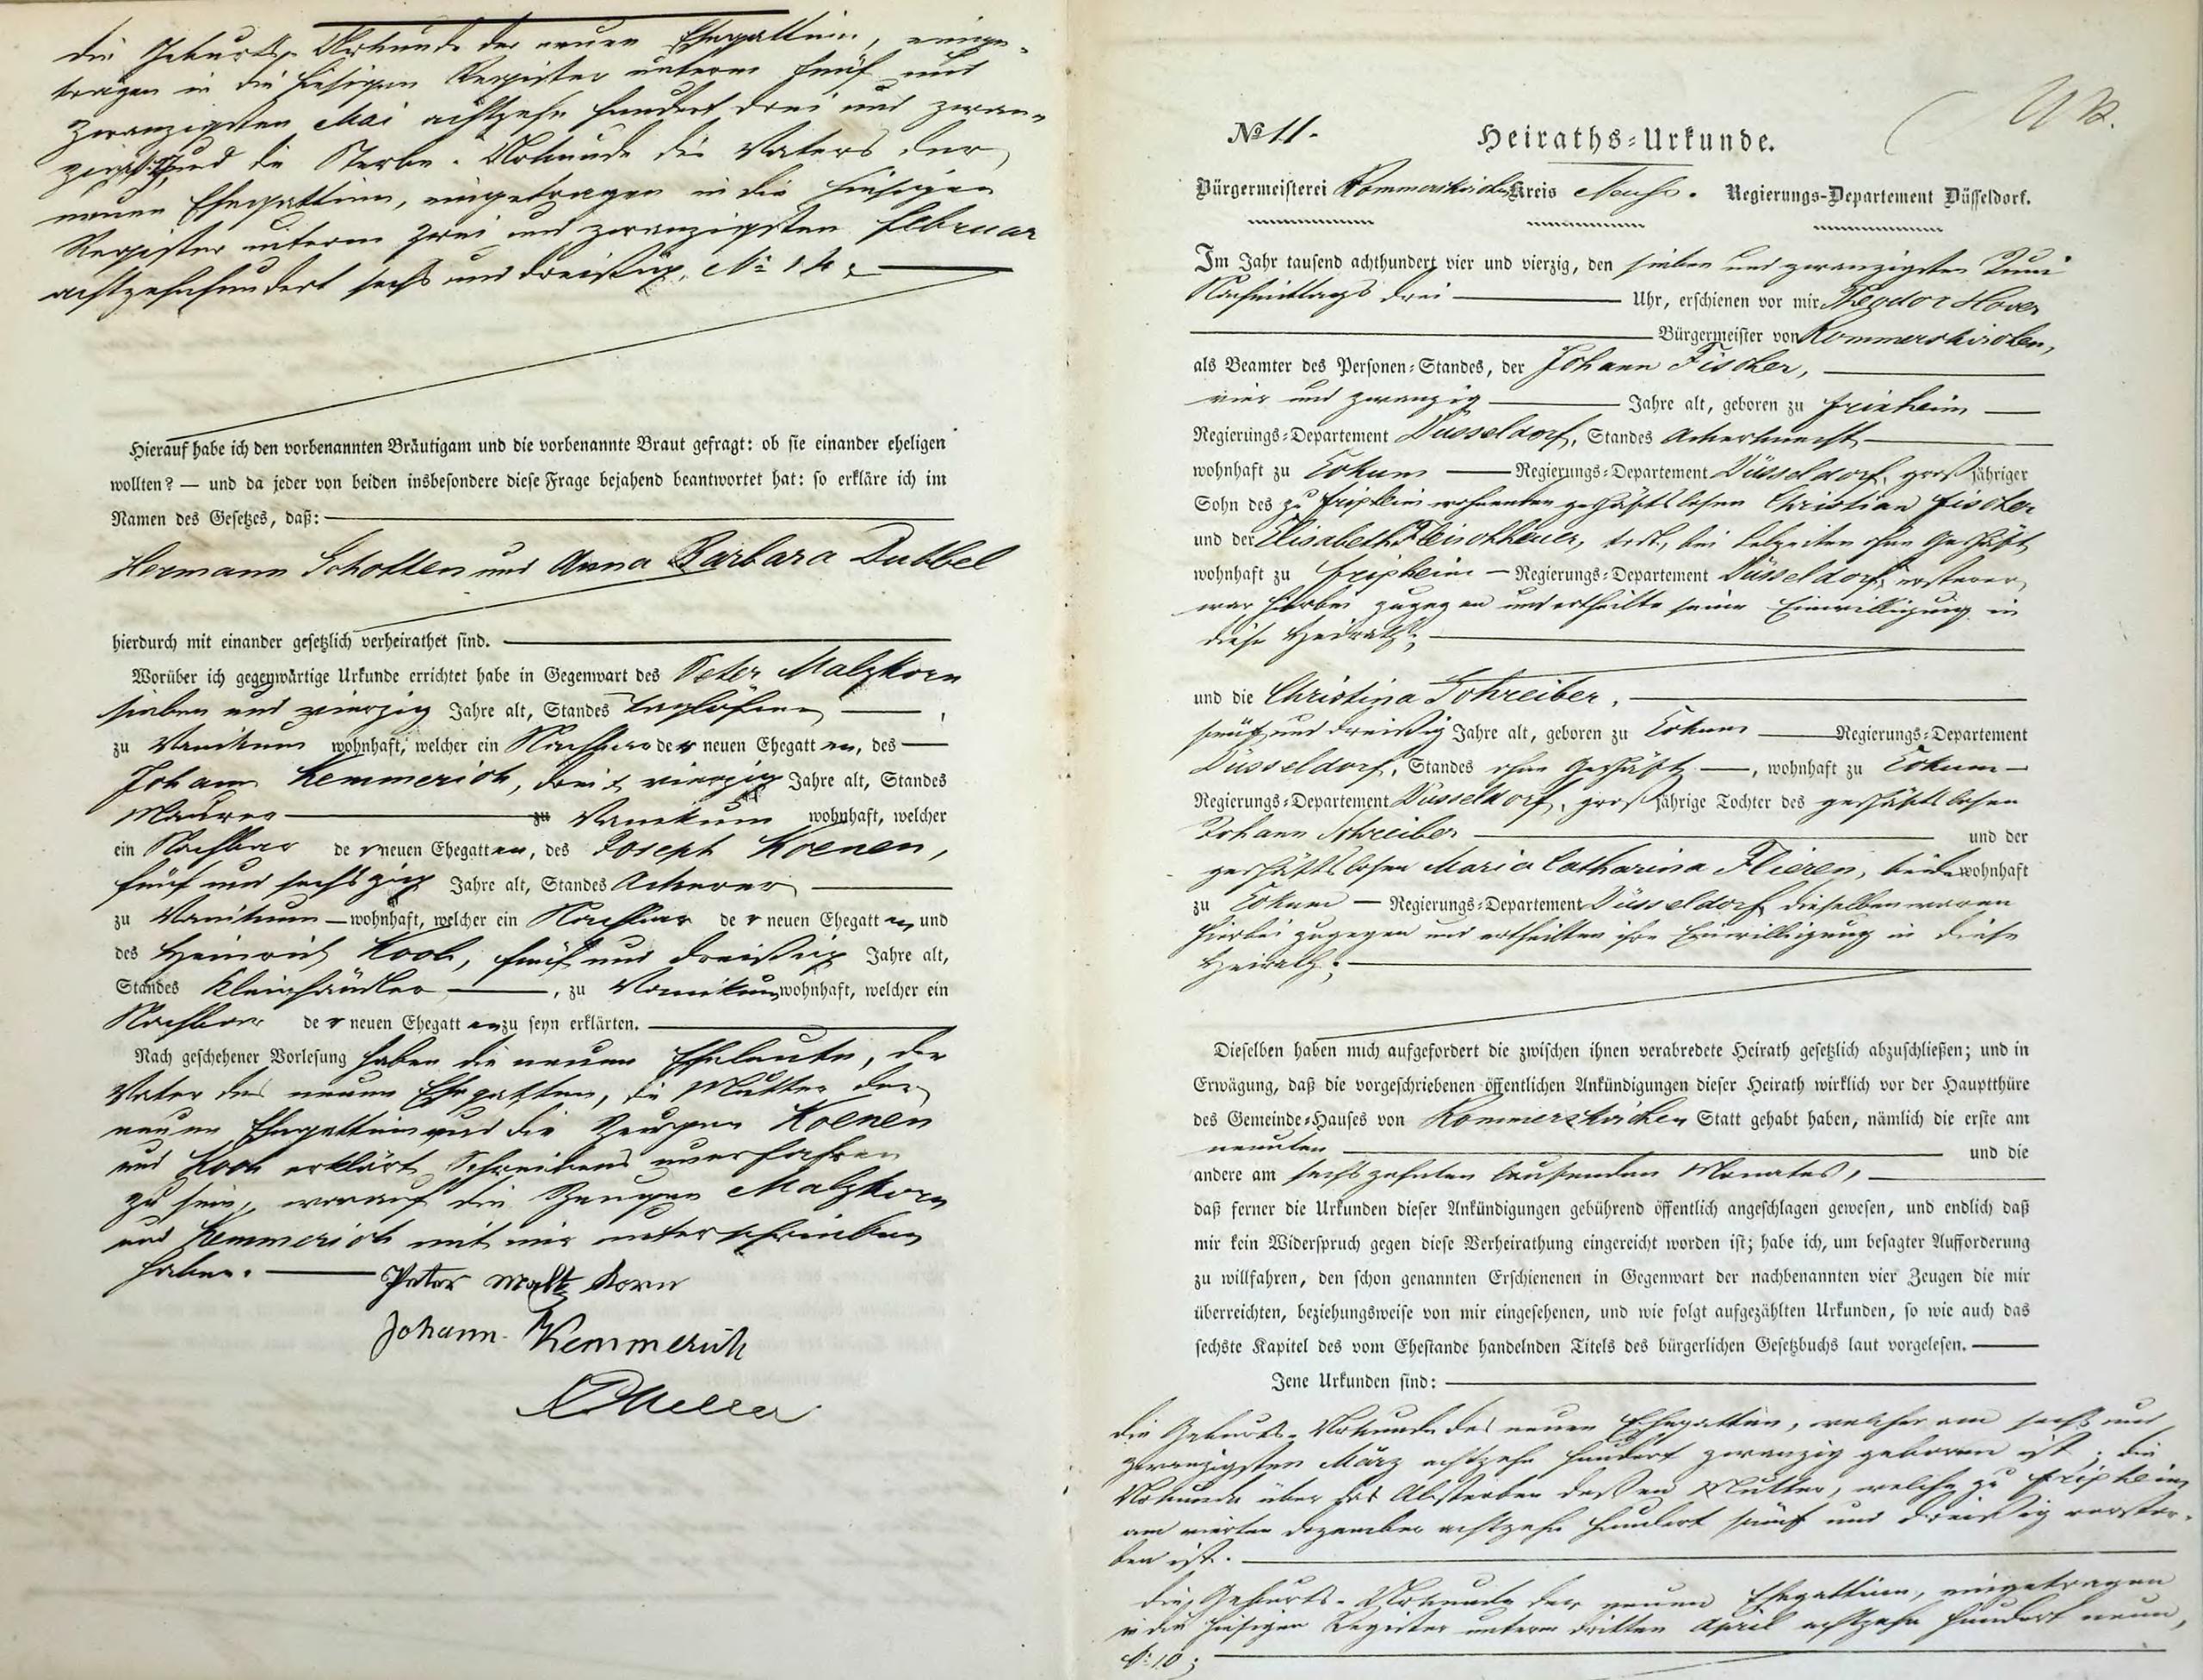 die Geburts-Urkunde der neuen Ehegattinn, einge-
tragen in die hiesigen Register unterm fünf und
zwanzigsten Mai achtzehn hundert drei und zwan-
zig, und die Sterbe-Urkunde des Vaters der
neuen Ehegattinn, eingetragen in die hiesigen
Register unterm zwei und zwanzigsten Februar
achtzehnhundert sechs und dreißig, No 14;
Hierauf habe ich den vorbenannten Bräutigam und die vorbenannte Braut gefragt: ob sie einander eheligen
wollten? — und da jeder von beiden insbesondere diese Frage bejahend beantwortet hat: so erkläre ich im
Namen des Gesetzes, daß:
Hermann Schotten und Anna Barbara Dubbel
hierdurch mit einander gesetzlich verheirathet sind.
Worüber ich gegenwärtige Urkunde errichtet habe in Gegenwart des Peter Malzkorn
sieben und vierzig Jahre alt, Standes Taglöhner,
zu Vanikum wohnhaft, welcher ein Nachbar der neuen Ehegatten, des
Johann Kemmerich, drei & vierzig Jahre alt, Standes
Maurer zu Vanikum wohnhaft, welcher
ein Nachbar der neuen Ehegatten, des Joseph Koenen,
fünf und sechszig Jahre alt, Standes Ackerer
zu Vanikum wohnhaft, welcher ein Nachbar der neuen Ehegatten und
des Heinrich Koch, fünf und dreißig Jahre alt,
Standes Kleinhändler, zu Vanikum wohnhaft, welcher ein
Nachbar der neuen Ehegatten zu seyn erklärten.
Nach geschehener Vorlesung haben die neuen Eheleute, der
Vater des neuen Ehegatten, die Mutter der
neuen Ehegattinn und die Zeugen Koenen
und Koch erklärt Schreibens unerfahren
zu sein, worauf die Zeugen Malzkorn
und Kemmerich mit mir unterschrieben
haben.
Peter Maltz korn
Johann Kemmerich
No 11.
Heiraths-Urkunde.
Bürgermeisterei Rommerskirchen Kreis Neuss. Regierungs-Departement Düsseldorf.
Im Jahr tausend achthundert vier und vierzig, den sieben und zwanzigsten Juni
Nachmittags drei Uhr, erschienen vor mir Theodor Höver
Bürgermeister von Rommerskirchen,
als Beamter des Personen-Standes, der Johann Fischer,
vier und zwanzig Jahre alt, geboren zu Frixheim
Regierungs-Departement Düsseldorf, Standes Ackerknecht
wohnhaft zu Eckum Regierungs-Departement Düsseldorf, großjähriger
Sohn des zu Frixheim wohnenden geschäftslosen Christian Fischer
und der Elisabeth Fleischheuer, todt, bei Lebzeiten ohne Geschäft
wohnhaft zu Frixheim Regierungs-Departement Düsseldorf, ersterer
war hierbei zugegen und ertheilte seine Einwilligung in
diese Heirath;
und die Christina Schreiber,
fünf und dreißig Jahre alt, geboren zu Eckum Regierungs-Departement
Düsseldorf, Standes ohne Geschäft, wohnhaft zu Eckum
Regierungs-Departement Düsseldorf, großjährige Tochter des geschäftslosen
Johann Schreiber und der
geschäftslosen Maria Catharina Flieren, beide wohnhaft
zu Eckum Regierungs-Departement Düsseldorf, dieselben waren
hierbei zugegen und ertheilten ihre Einwilligung in diese
Heirath;
Dieselben haben mich aufgefordert die zwischen ihnen verabredete Heirath gesetzlich abzuschließen; und in
Erwägung, daß die vorgeschriebenen öffentlichen Ankündigungen dieser Heirath wirklich vor der Hauptthüre
des Gemeinde-Hauses von Rommerskirchen Statt gehabt haben, nämlich die erste am
neunten und die
andere am sechszehnten laufenden Monates,
daß ferner die Urkunden dieser Ankündigungen gebührend öffentlich angeschlagen gewesen, und endlich daß
mir kein Widerspruch gegen diese Verheirathung eingereicht worden ist; habe ich, um besagter Aufforderung
zu willfahren, den schon genannten Erschienenen in Gegenwart der nachbenannten vier Zeugen die mir
überreichten, beziehungsweise von mir eingesehenen, und wie folgt aufgezählten Urkunden, so wie auch das
sechste Kapitel des vom Ehestande handelnden Titels des bürgerlichen Gesetzbuchs laut vorgelesen.
Jene Urkunden sind:
die Geburts-Urkunde des neuen Ehegatten, welcher am sechs und
zwanzigsten März achtzehn hundert zwanzig geboren ist; die
Urkunde über das Absterben dessen Mutter, welche zu Frixheim
am vierten Dezember achtzehn hundert fünf und dreißig verstor-
ben ist.
die Geburts-Urkunde der neuen Ehegattinn, eingetragen
in die hiesigen Register unterm dritten April achtzehn hundert neun,
No 10;